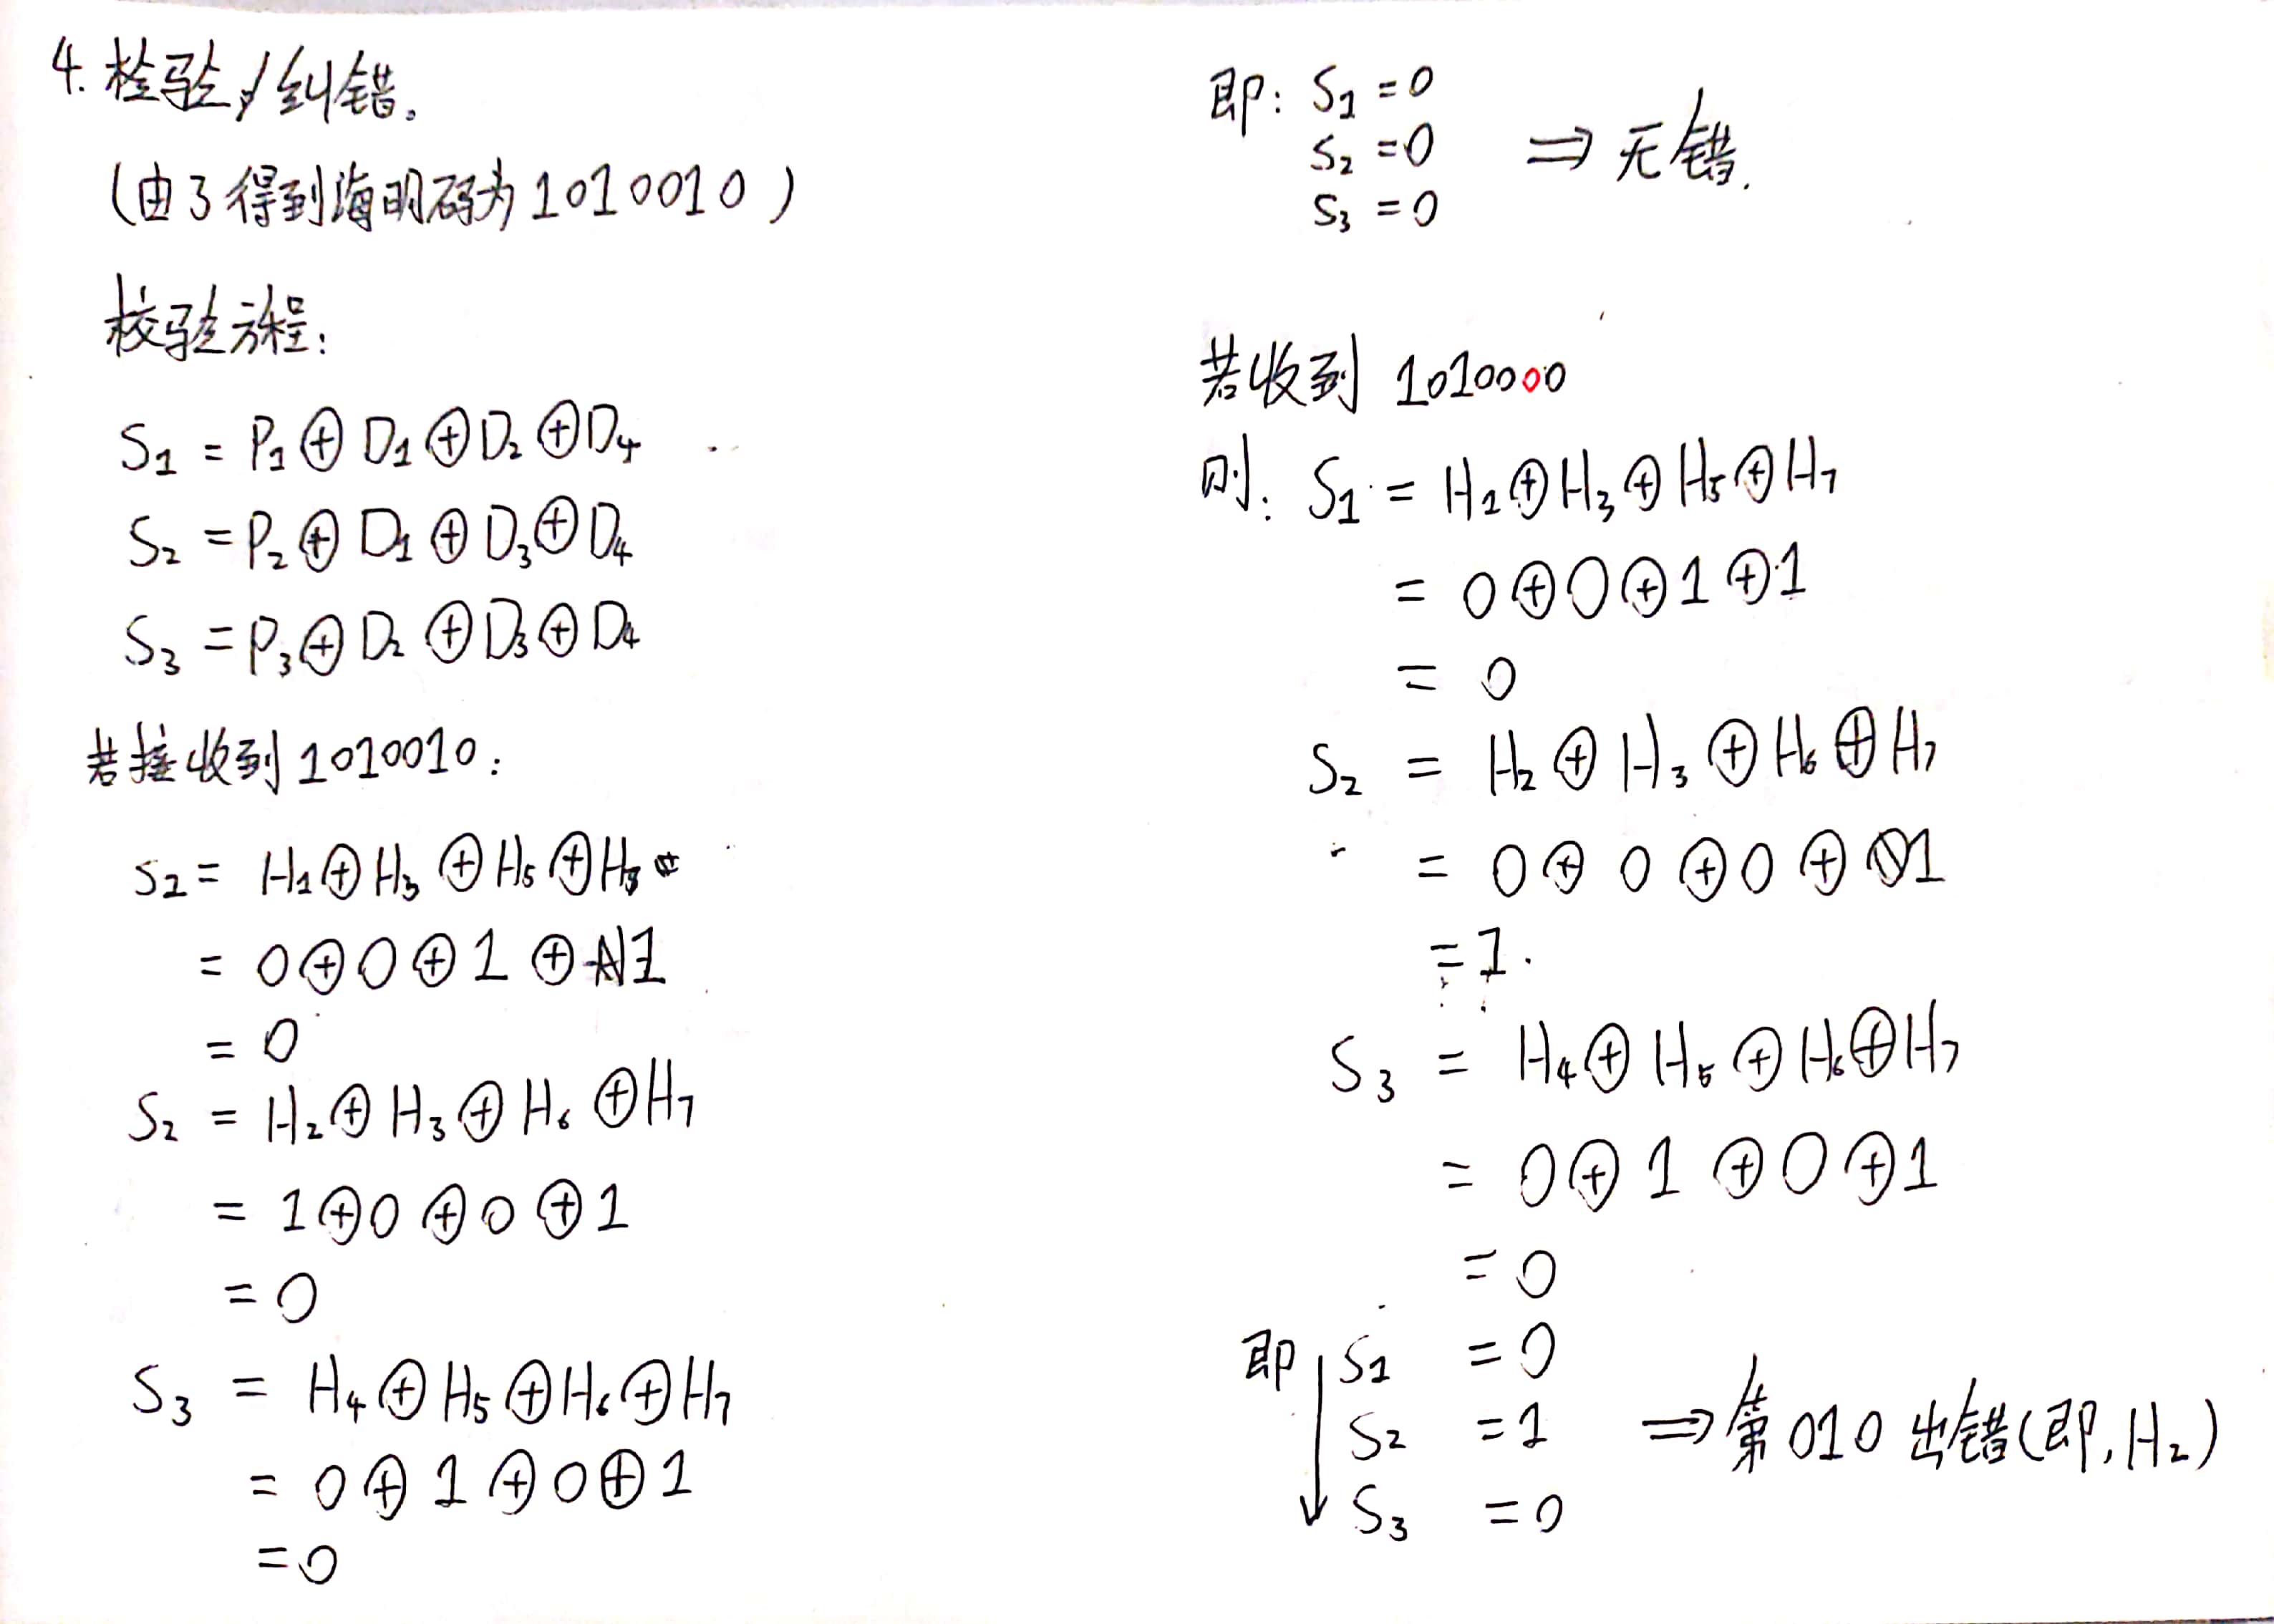 4. 检验/纠错。
(由3得到海明码为1010010)
校验方程:
S₁ = P₁⊕D₁⊕D₂⊕D₄
S₂ = P₂⊕D₁⊕D₃⊕D₄
S₃ = P₃⊕D₂⊕D₃⊕D₄
若接收到1010010:
S₂ = H₁⊕H₃⊕H₅⊕
= 0⊕0⊕1⊕1
= 0
S₂ = H₂⊕H₃⊕H₆⊕H₇
= 1⊕0⊕0⊕1
= 0
S₃ = H₄⊕H₅⊕H₆⊕H₇
= 0⊕1⊕0⊕1
= 0
即: S₁ = 0
S₂ = 0 ⇒ 无错.
S₃ = 0
若收到 1010000
则: S₁ = H₁⊕H₃⊕H₅⊕H₇
= 0⊕0⊕1⊕1
= 0
S₂ = H₂⊕H₃⊕H₆⊕H₇
= 0⊕0⊕0⊕1
= 1.
S₃ = H₄⊕H₅⊕H₆⊕H₇
= 0⊕1⊕0⊕1
= 0
即 S₁ = 0
S₂ = 1 ⇒ 第010出错(即,H₂)
S₃ = 0